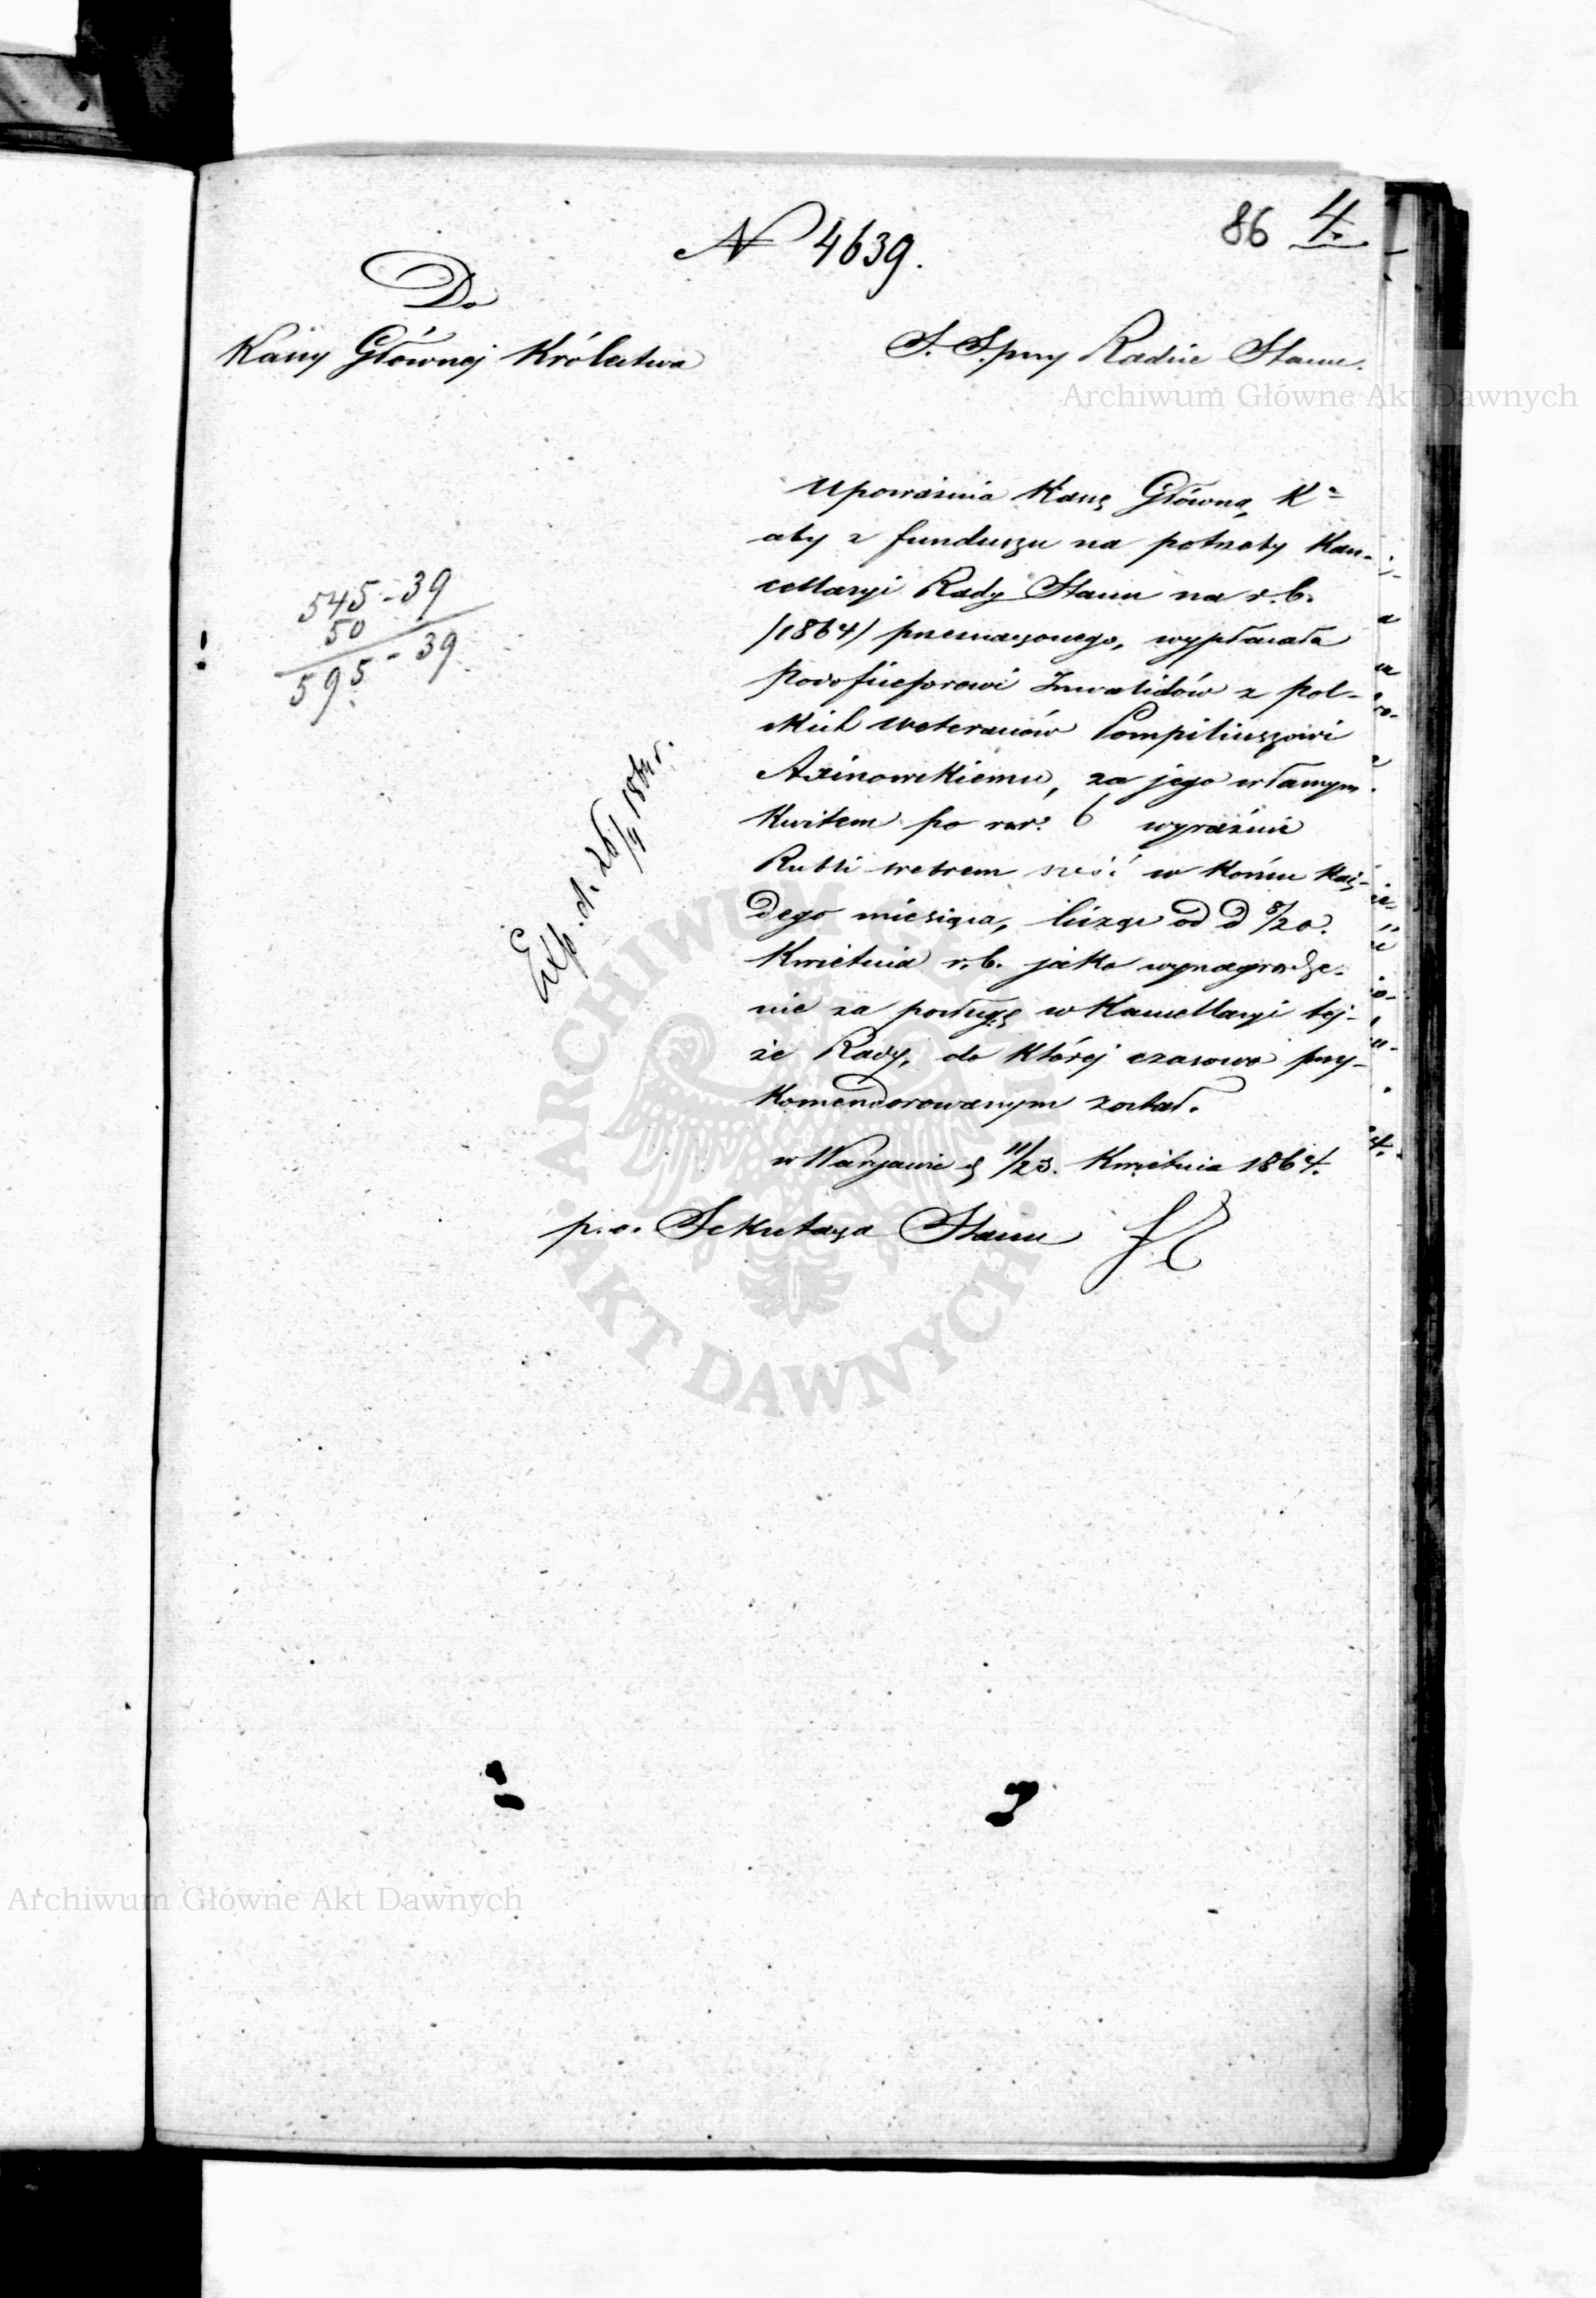 86 4.
N 4639.
Do
Kassy Głównej Królestwa
S. S. przy Radzie Stanu.
Archiwum Główne Akt Dawnych
Upoważnia Kassę Główną Kᵃ
aby z funduszu na potrzeby Kan-
cellaryi Rady Stanu na r. b.
/1864/ przeznaczonego, wypłacała
Podofficerowi Inwalidów z pol-
skich weteranów Pompiliuszowi
Axinowskiemu, za jego własnym
Kwitem po rsr. 6 wyraźnie
Rubli srebrem sześć w końcu każ-
dego miesiąca, licząc od d 8/20.
Kwietnia r. b. jako wynagrodze-
nie za posługę w Kancellaryi tej-
że Rady, do której czasowo przy-
komenderowanym został.
w Warszawie d 11/23. Kwietnia 1864.
p. o. Sekretarza Stanu
545-39
50
595-39
Exp. d. 26/4 1864 r.
ARCHIWUM GŁÓWNE AKT DAWNYCH
Archiwum Główne Akt Dawnych